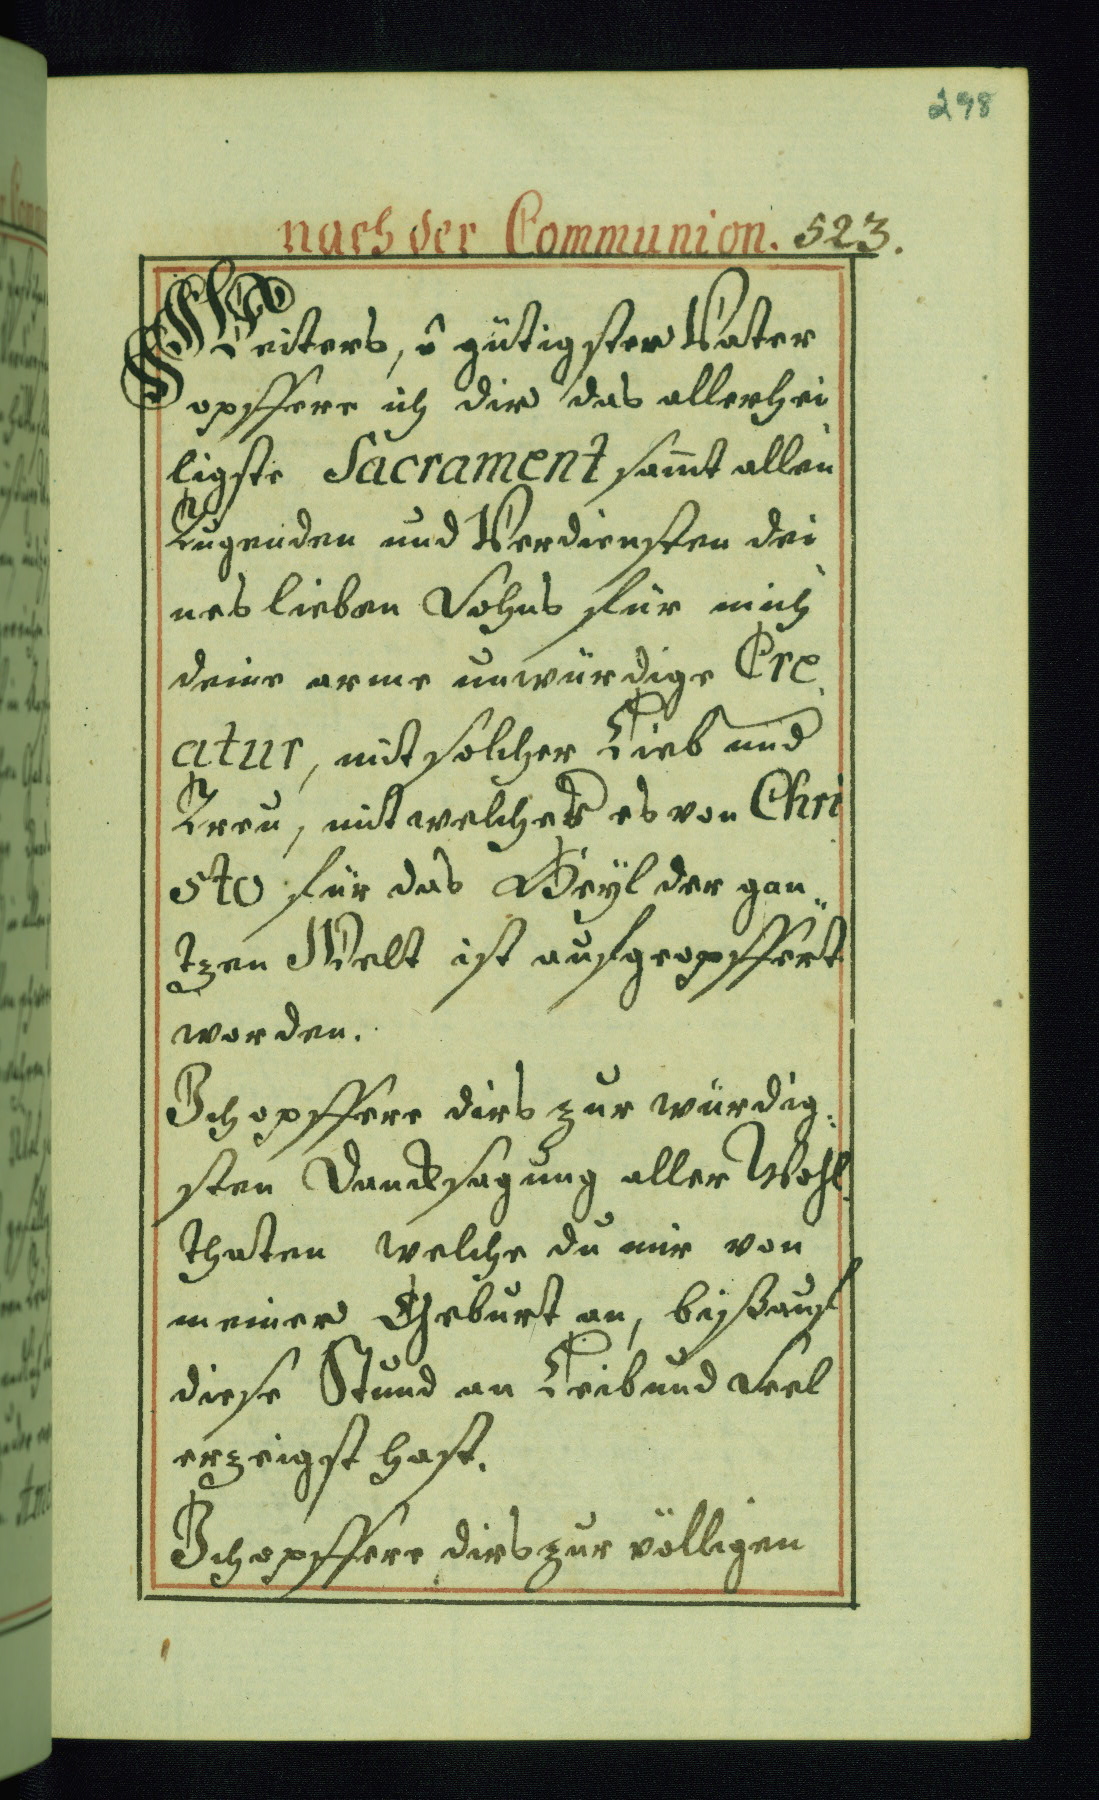 298
nach der Communion. 523.
Weiters, ô gütigster Vatter
opffere ich dir das allerhei
ligste Sacrament sam̄t allen
Tugenden und Verdiensten dei
nes lieben Sohns für mich
deine arme unwürdige Cre,
atur, mit solcher Lieb und
Treu, mit welcher es von Chri
sto für das Heyl der gan„
tzen Welt ist aufgeopffert
worden.
Ich opffere dirs zur würdig,
sten Dancksagung aller Wohl,
thaten welche du mir von
meiner Geburt an, bisß auf
diese Stund an Leib und Seel
erzeigst hast.
Ich opffere dirs zur völligen